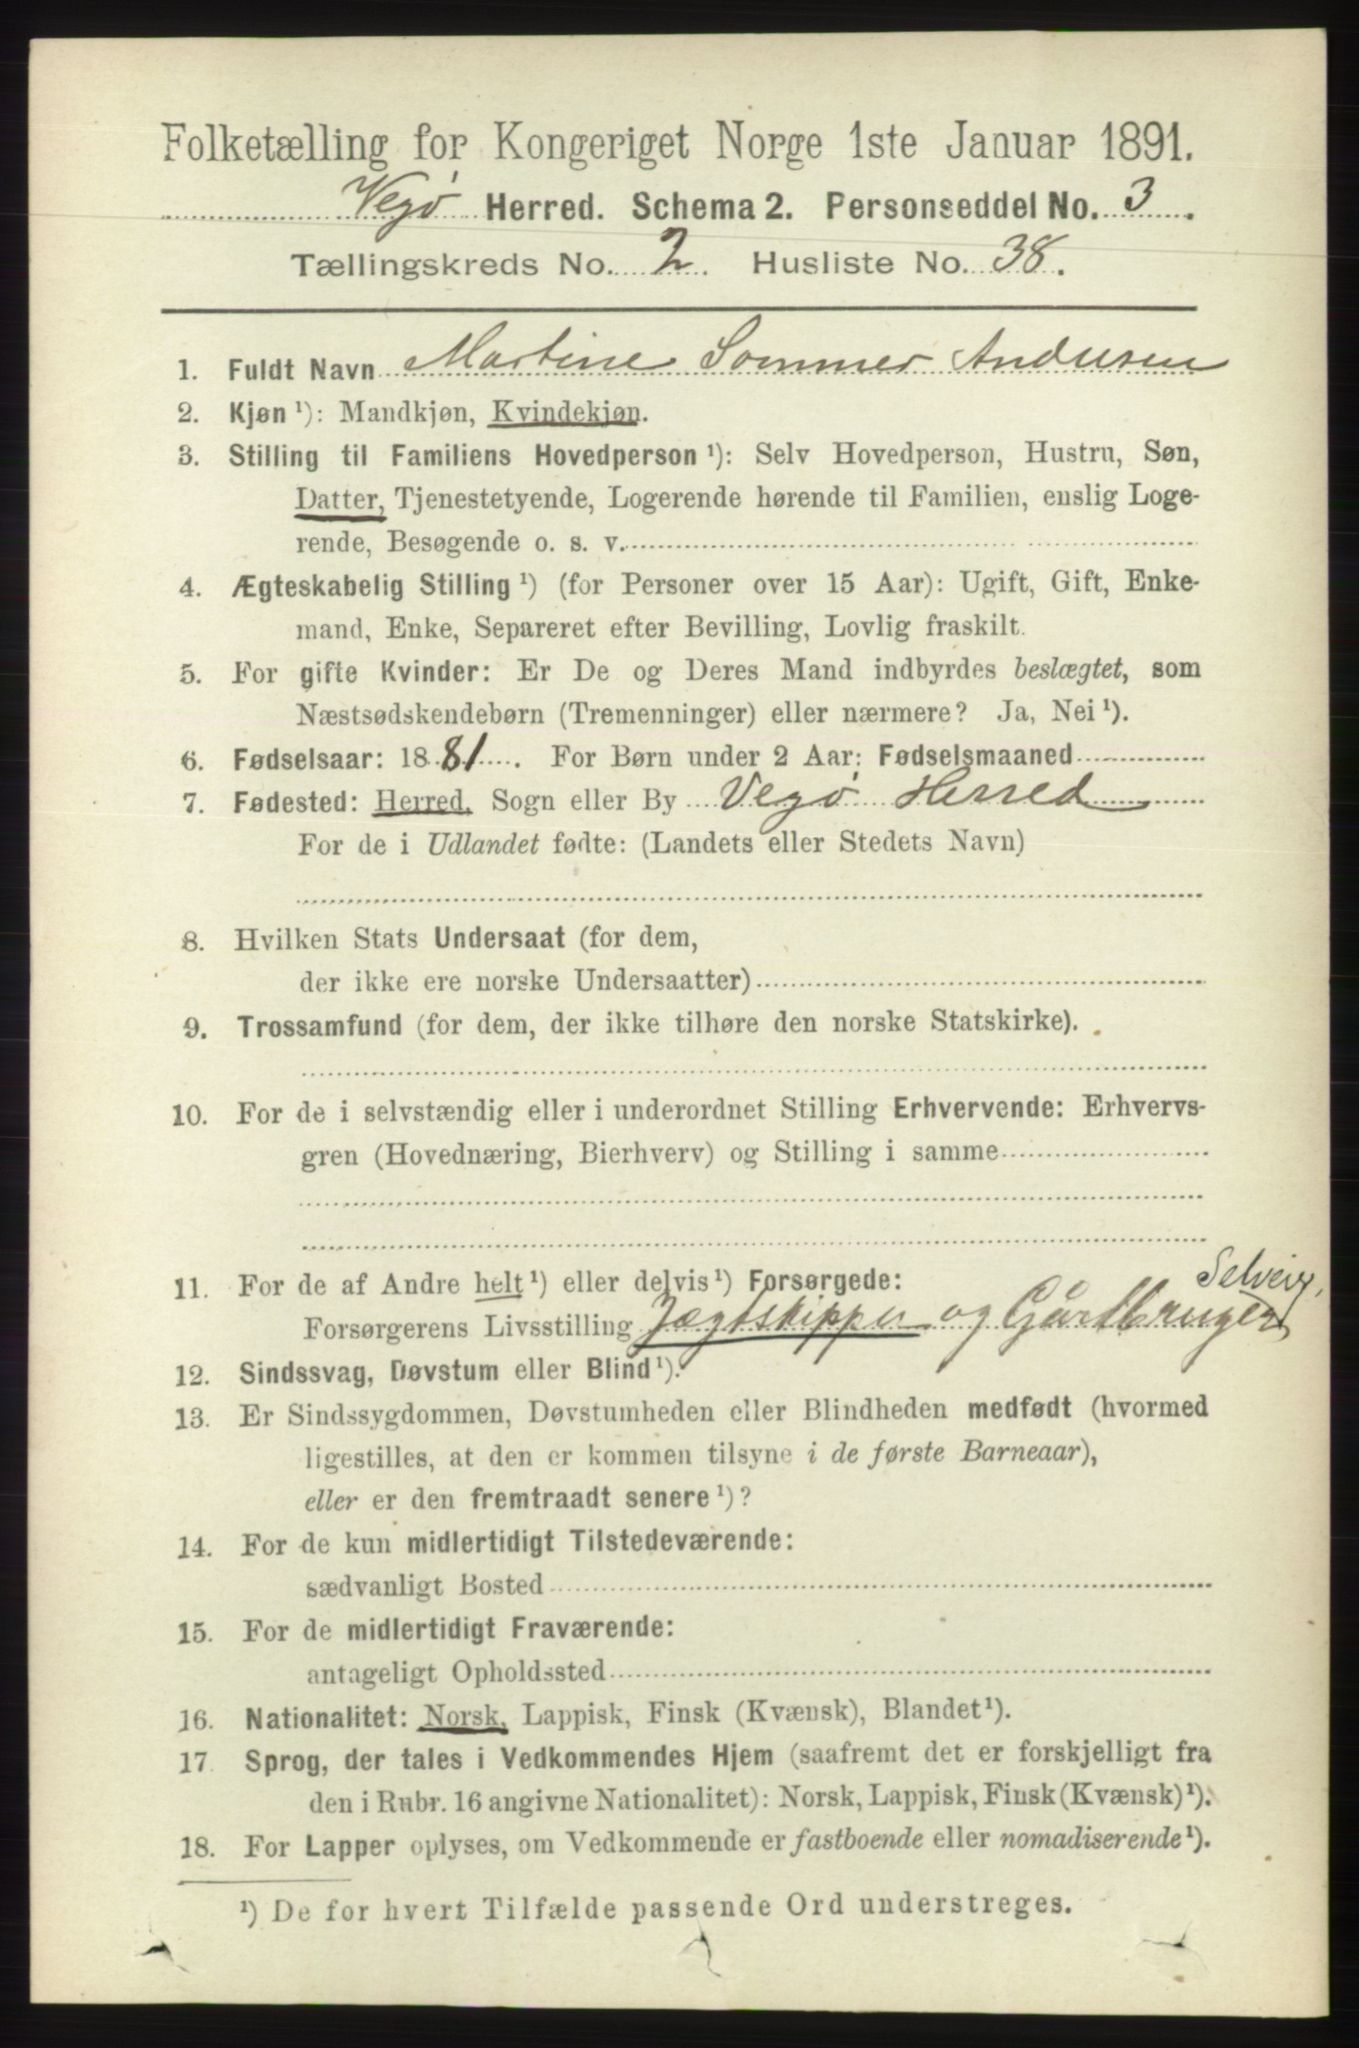 Folketælling for Kongeriget Norge 1ste Januar 1891.
Vegø Herred. Schema 2. Personseddel No. 3.
Tællingskreds No. 2. Husliste No. 38.
1. Fuldt Navn Martine Sommer Andersen
2. Kjøn ¹): Mandkjøn, Kvindekjøn.
3. Stilling til Familiens Hovedperson ¹): Selv Hovedperson, Hustru, Søn,
Datter, Tjenestetyende, Logerende hørende til Familien, enslig Loge-
rende, Besøgende o. s. v.
4. Ægteskabelig Stilling ¹) (for Personer over 15 Aar): Ugift, Gift, Enke-
mand, Enke, Separeret efter Bevilling, Lovlig fraskilt.
5. For gifte Kvinder: Er De og Deres Mand indbyrdes beslægtet, som
Næstsødskendebørn (Tremenninger) eller nærmere? Ja, Nei ¹).
6. Fødselsaar: 1881. For Børn under 2 Aar: Fødselsmaaned
7. Fødested: Herred, Sogn eller By Vegø Herred
For de i Udlandet fødte: (Landets eller Stedets Navn)
8. Hvilken Stats Undersaat (for dem,
der ikke ere norske Undersaatter)
9. Trossamfund (for dem, der ikke tilhøre den norske Statskirke).
10. For de i selvstændig eller i underordnet Stilling Erhvervende: Erhvervs-
gren (Hovednæring, Bierhverv) og Stilling i samme
11. For de af Andre helt ¹) eller delvis ¹) Forsørgede: Selveier,
Forsørgerens Livsstilling Jægtskipper og Gårdbruger
12. Sindssvag, Døvstum eller Blind ¹).
13. Er Sindssygdommen, Døvstumheden eller Blindheden medfødt (hvormed
ligestilles, at den er kommen tilsyne i de første Barneaar),
eller er den fremtraadt senere ¹)?
14. For de kun midlertidigt Tilstedeværende:
sædvanligt Bosted
15. For de midlertidigt Fraværende:
antageligt Opholdssted
16. Nationalitet: Norsk, Lappisk, Finsk (Kvænsk), Blandet ¹).
17 Sprog, der tales i Vedkommendes Hjem (saafremt det er forskjelligt fra
den i Rubr. 16 angivne Nationalitet): Norsk, Lappisk, Finsk (Kvænsk) ¹).
18. For Lapper oplyses, om Vedkommende er fastboende eller nomadiserende ¹).
¹) De for hvert Tilfælde passende Ord understreges.